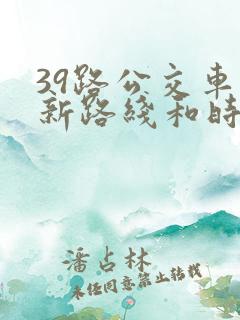 39路公交车
新路线和时
潘占林
未经同意禁止转载